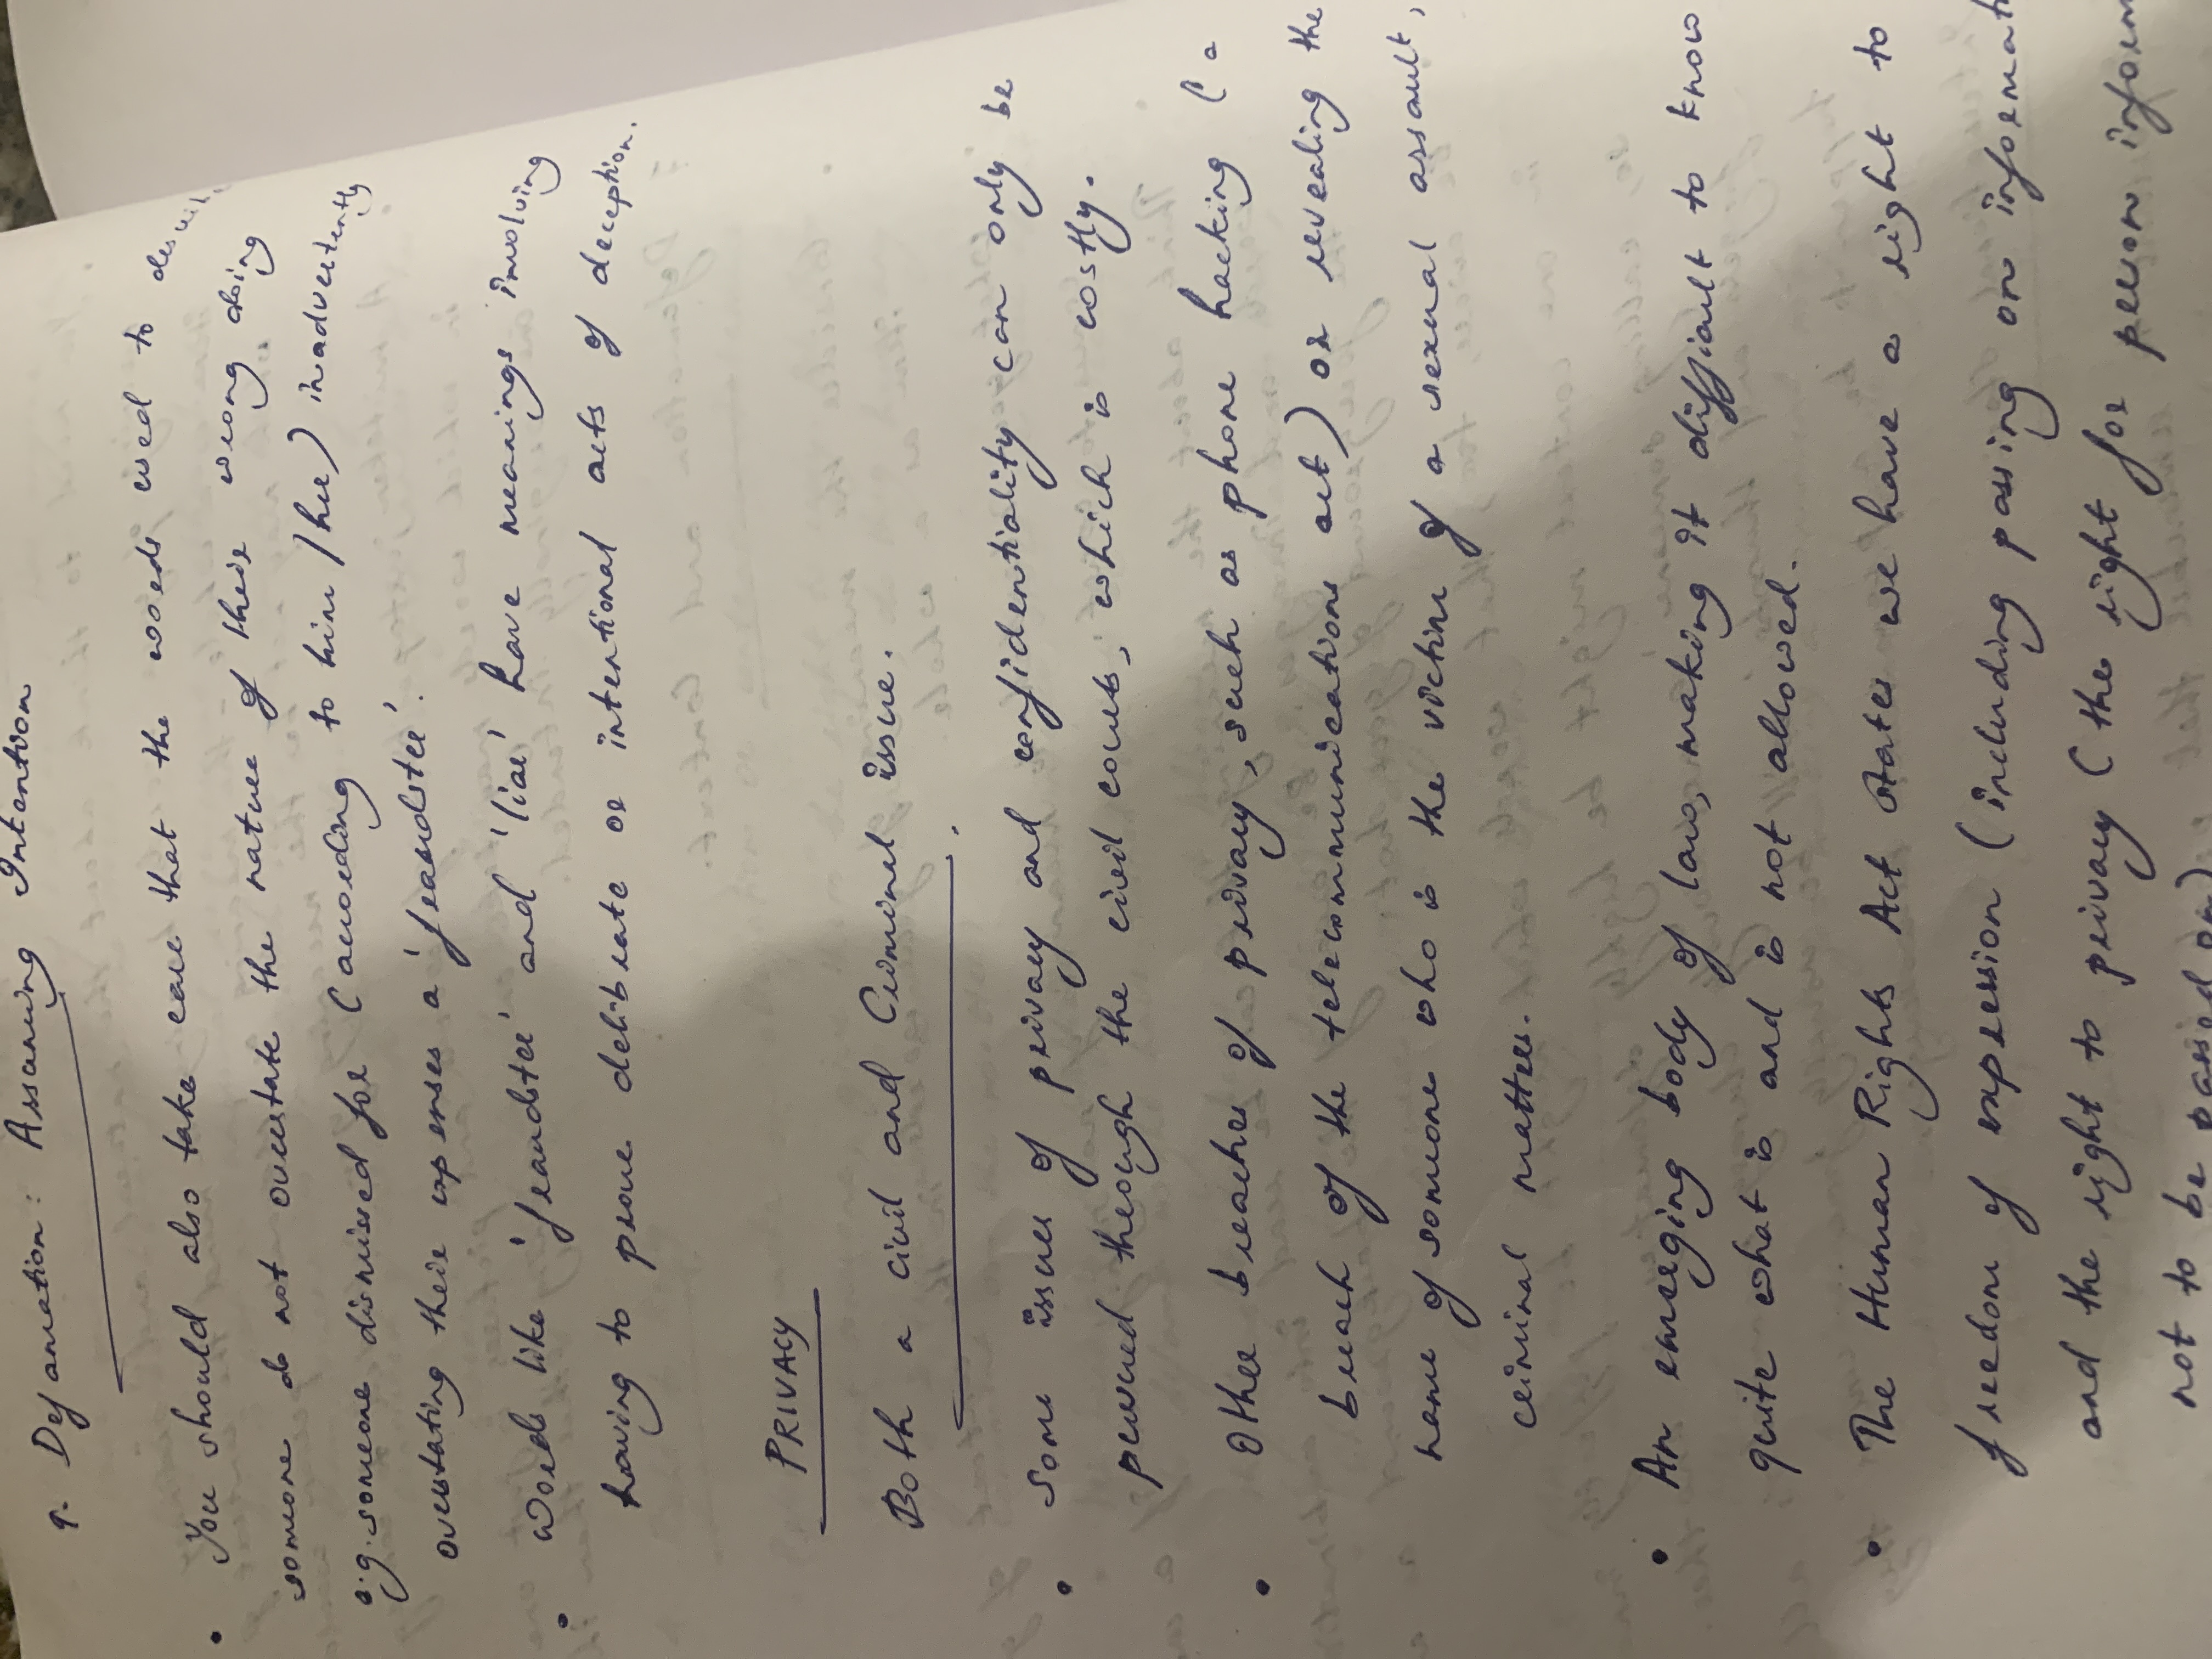 9. Defamation: Assuming Intention
• You should also take care that the words used to
someone do not overstate the nature of their wrong doing
e.g. someone dismissed for (according to him/her) inadvertently
overstating their expenses a 'fraudster'.
• Words like 'fraudster' and 'liar' have meanings involving
having to prove deliberate or intentional acts of deception.
PRIVACY
Both a civil and Criminal issue.
• Some issues of privacy and confidentiality can only be
pursued through the civil courts, which is costly.
• Other breaches of privacy, such as phone hacking (a
breach of the telecommunications act) or revealing the
name of someone who is the victim of a sexual assault,
criminal matters.
• An emerging body of law, making it difficult to know
quite what is and is not allowed.
• The Human Rights Act states we have a right to
freedom of expression (including passing on informati
and the right to privacy (the right for person inform
not to be passed on)